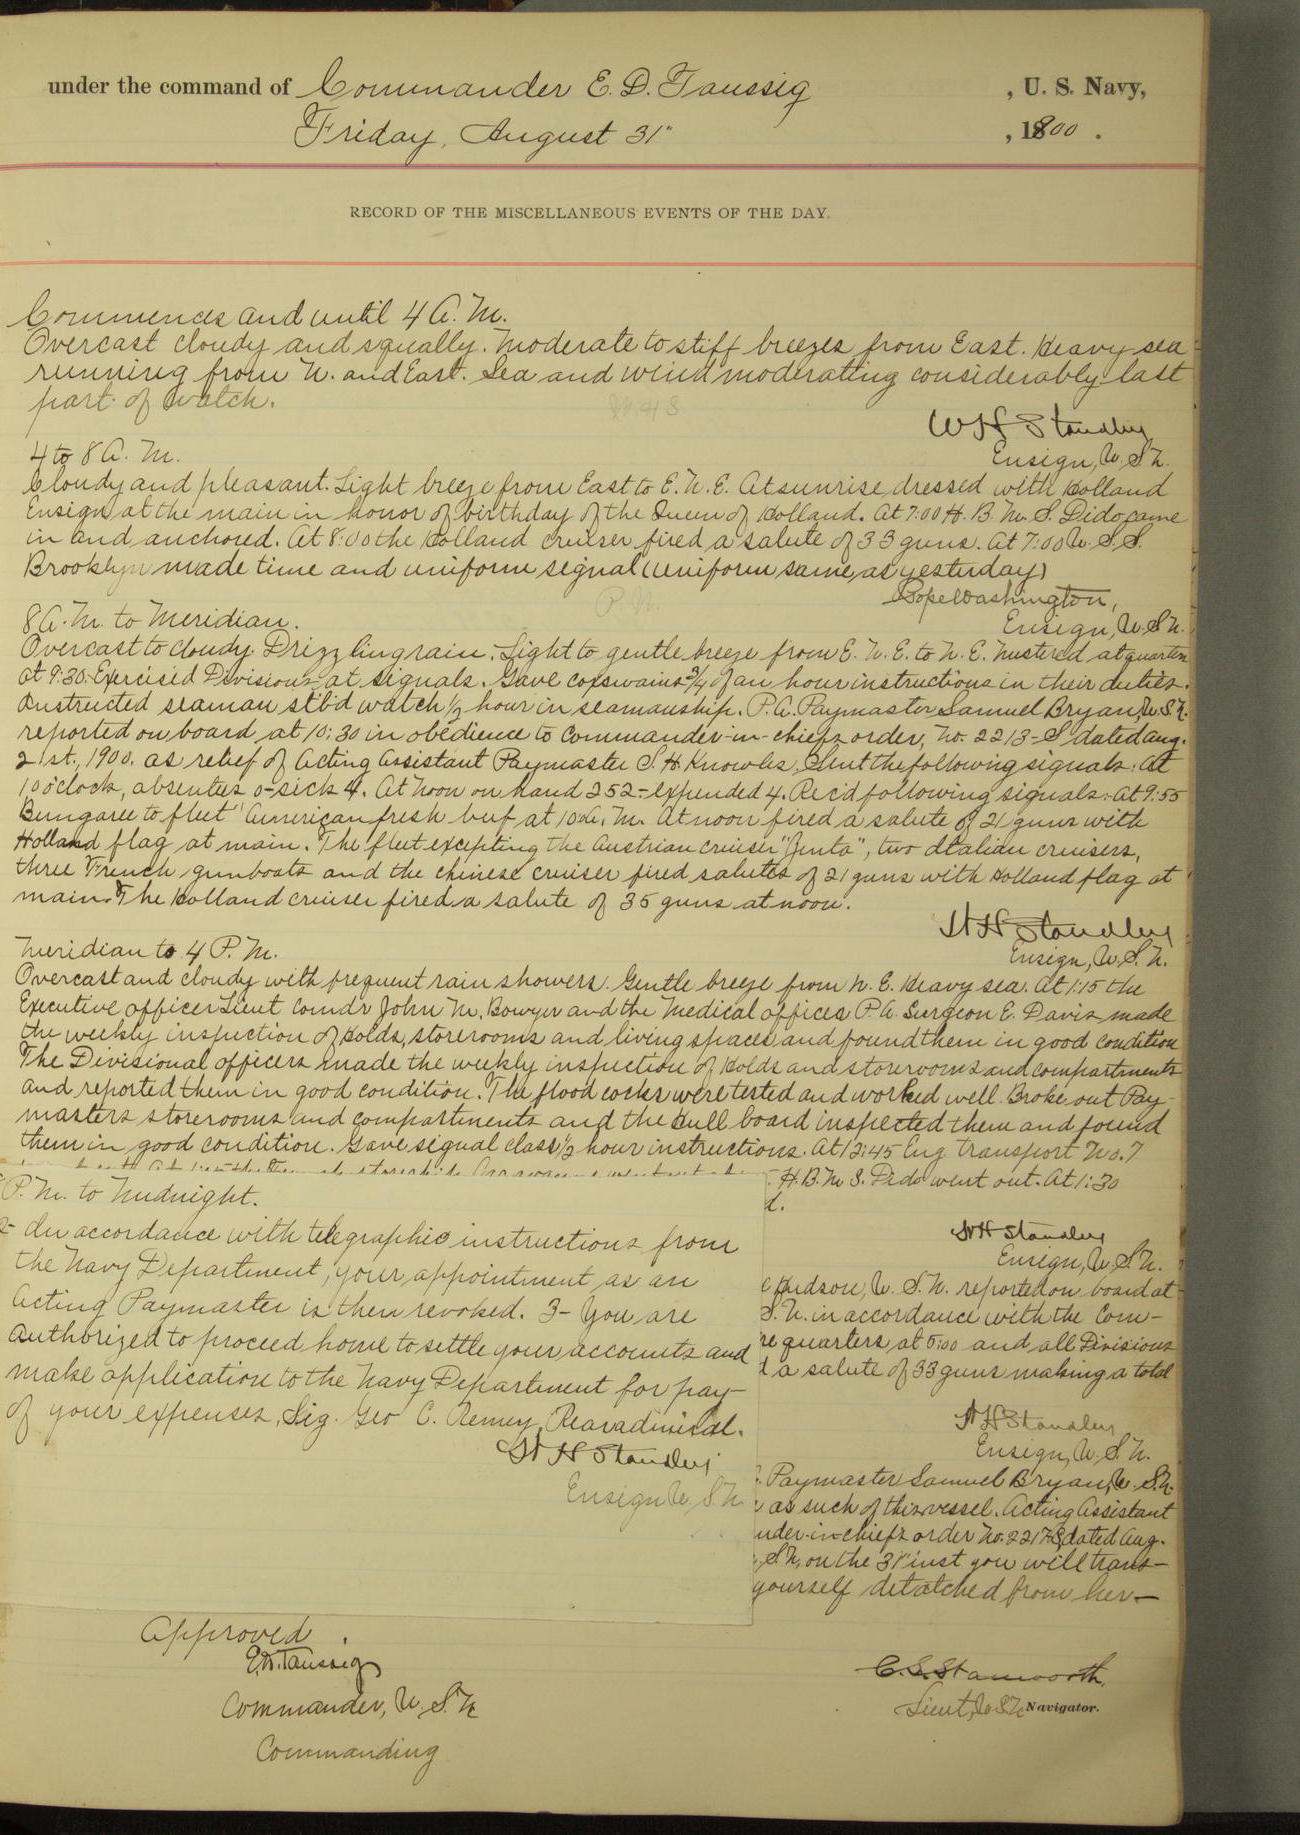 under the command of Commander E. D. Taussig, U. S. Navy,
Friday, August 31", 1900.
RECORD OF THE MISCELLANEOUS EVENTS OF THE DAY.
Commences and until 4 A. M.
Overcast cloudy and squally. Moderate to stiff breezes from East. Heavy sea
running from N. and East. Sea and wind moderating considerably last
part of watch.
W H Standley
Ensign, U. S. N.
4 to 8 A. M.
Cloudy and pleasant. Light breeze from East to E. N. E. At sunrise, dressed with Holland
Ensign at the main in honor of birthday of the Queen of Holland. At 7:00 H. B. M. S. Dido came
in and anchored. At 8:00 the Holland cruiser fired a salute of 33 guns. At 7:00 U. S. S.
Brooklyn made time and uniform signal (uniform same as yesterday)
Pope Washington,
Ensign, U. S. N.
8 A. M. to Meridian.
Overcast to cloudy. Drizzling rain. Light to gentle breeze from E. N. E. to N. E. Mustered at quarters
at 9:30. Exercised Divisions at signals. Gave coxswains 3/4 of an hour instructions in their duties.
Instructed seaman stb'd watch 1/2 hour in seamanship. P. A. Paymaster Samuel Bryan, U. S. N.
reported on board at 10:30 in obedience to Commander-in-chief's order, No. 2213-S dated Aug.
21st, 1900. as relief of Acting Assistant Paymaster S. H. Knowles. Sent the following signals: At
10 o'clock, absentees 0-sick 4. At Noon on hand 252-expended 4. Rec'd following signals:- At 9:55
Bungaree to fleet "American fresh beef at 10 A. M. At noon fired a salute of 21 guns with
Holland flag at main. The fleet excepting the Austrian cruiser "Zenta", two Italian cruisers,
three French gunboats and the chinese cruiser fired salutes of 21 guns with Holland flag at
main. The Holland cruiser fired a salute of 35 guns at noon.
W H Standley
Ensign, U. S. N.
Meridian to 4 P. M.
Overcast and cloudy with frequent rain showers. Gentle breeze from N. E. Heavy sea. At 1:15 the
Executive officer Lieut Comdr John M. Bowyer and the Medical officer P. A. Surgeon E. Davis made
the weekly inspection of holds, storerooms and living spaces and found them in good condition
The Divisional officers made the weekly inspection of Holds and storerooms and compartments
and reported them in good condition. The flood cocks were tested and worked well. Broke out Pay-
masters storerooms and compartments and the Hull board inspected them and found
them in good condition. Gave signal class 1/2 hour instructions. At 12:45 Eng. transport No. 7
H. B. M. S. Dido went out. At 1:30
d.
W H Standley
Ensign, U. S. N.
Hudson, U. S. N. reported on board at
S. N. in accordance with the Com-
re quarters, at 5:00 and all Divisions
d a salute of 33 guns making a total
W H Standley
Ensign, U. S. N.
Paymaster Samuel Bryan, U. S. N.
as such of this vessel. Acting Assistant
nder-in-chief's order No. 2217-S, dated Aug.
S. N. on the 31" inst you will trans-
yourself detatched from her—
P. M. to Midnight.
2- In accordance with telegraphic instructions from
the Navy Department, your appointment as an
Acting Paymaster is then revoked. 3- You are
authorized to proceed home to settle your accounts and
make application to the Navy Department for pay-
of your expenses, Sig. Geo C. Remey, Rearadmiral.
W H Standley
Ensign U. S. N.
Approved
E. D. Taussig
Commander, U. S. N
Commanding
C. S. Stanworth,
Lieut, U. S. N. Navigator.